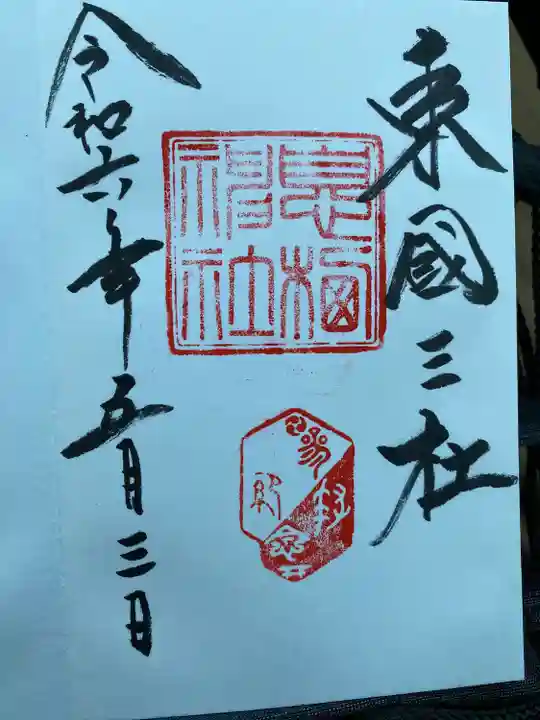 東國三社
息栖神社
令和六年五月三日